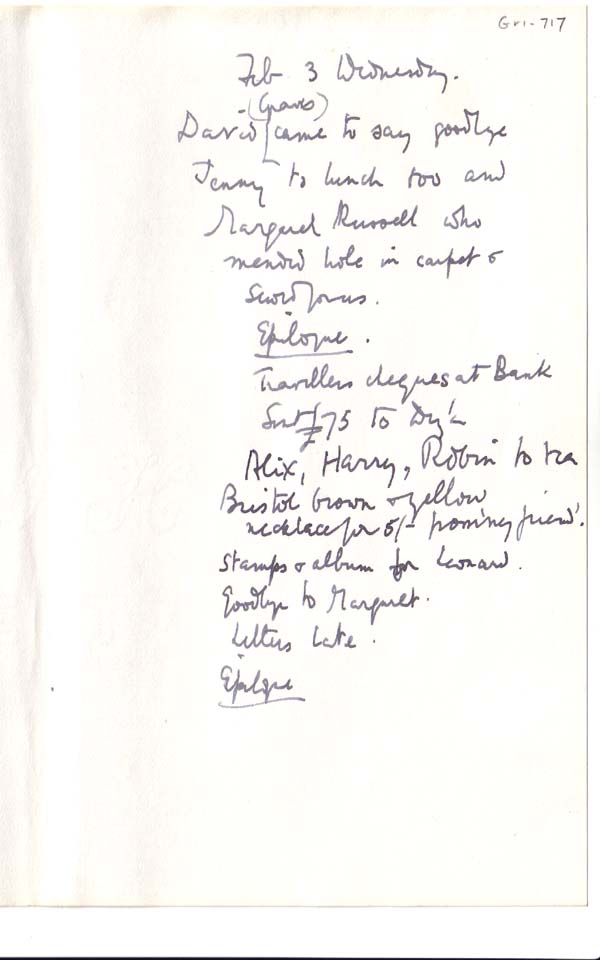 Gri-717
Feb 3 Wednesday.
(Graves)
David came to say goodbye
Jenny to lunch too and
Margaret Russell who
mended hole in carpet &
Epilogue.
Travellers cheques at Bank
Sent £75 to
Alix, Harry, Robin to tea
Bristol brown & yellow
necklace for 5/-
Stamps & album for Leonard.
Goodbye to Margaret.
Letters late.
Epilogue